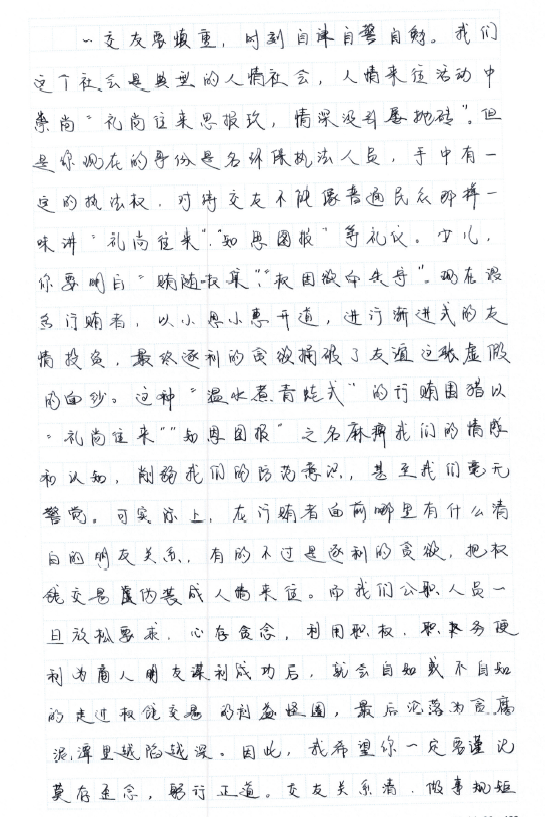 “交友要慎重，时刻自律自警自勉。我们
这个社会是典型的人情社会，人情来往活动中
崇尚“礼尚往来思报玖，情深没到屡抛砖”。但
是你现在的身份是名环保执法人员，手中有一
定的执法权，对待交友不能像普通民众那样一
味讲“礼尚往来”、“知恩图报”等礼仪。少儿，
你要明白“贿随权集”、“权因欲命失导”。现在很
多行贿者，以小恩小惠开道，进行渐进式的友
情投资，最终逐利的贪欲捅破了友谊这张虚假
的面纱。这种“温水煮青蛙式”的行贿围猎以
“礼尚往来”“知恩图报”之名麻痹我们的情感
和认知，削弱我们的防范意识，甚至我们毫无
警觉。可实际上，在行贿者面前哪里有什么清
白的朋友关系，有的不过是逐利的贪欲，把权
钱交易伪装成人情来往。而我们公职人员一
旦放松要求，心存贪念，利用职权、职务便
利为商人朋友谋利成功后，就会自知或不自知
的走进权钱交易的利益怪圈，最后沦落为贪腐
泥潭里越陷越深。因此，我希望你一定要谨记
莫存歪念，躬行正道。交友关系清，做事规矩